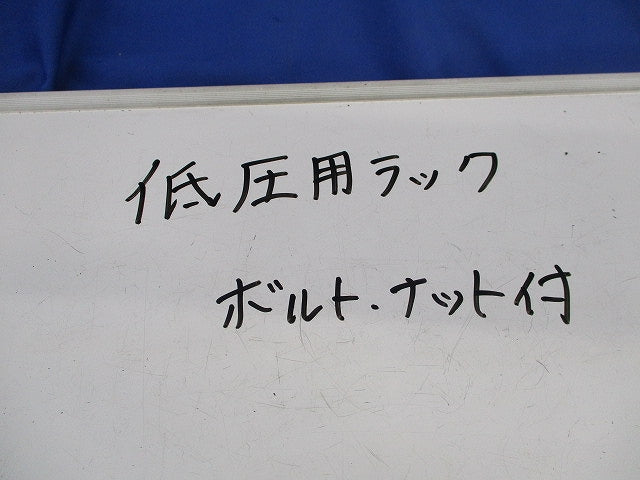 低圧用ラック
ボルト・ナット付